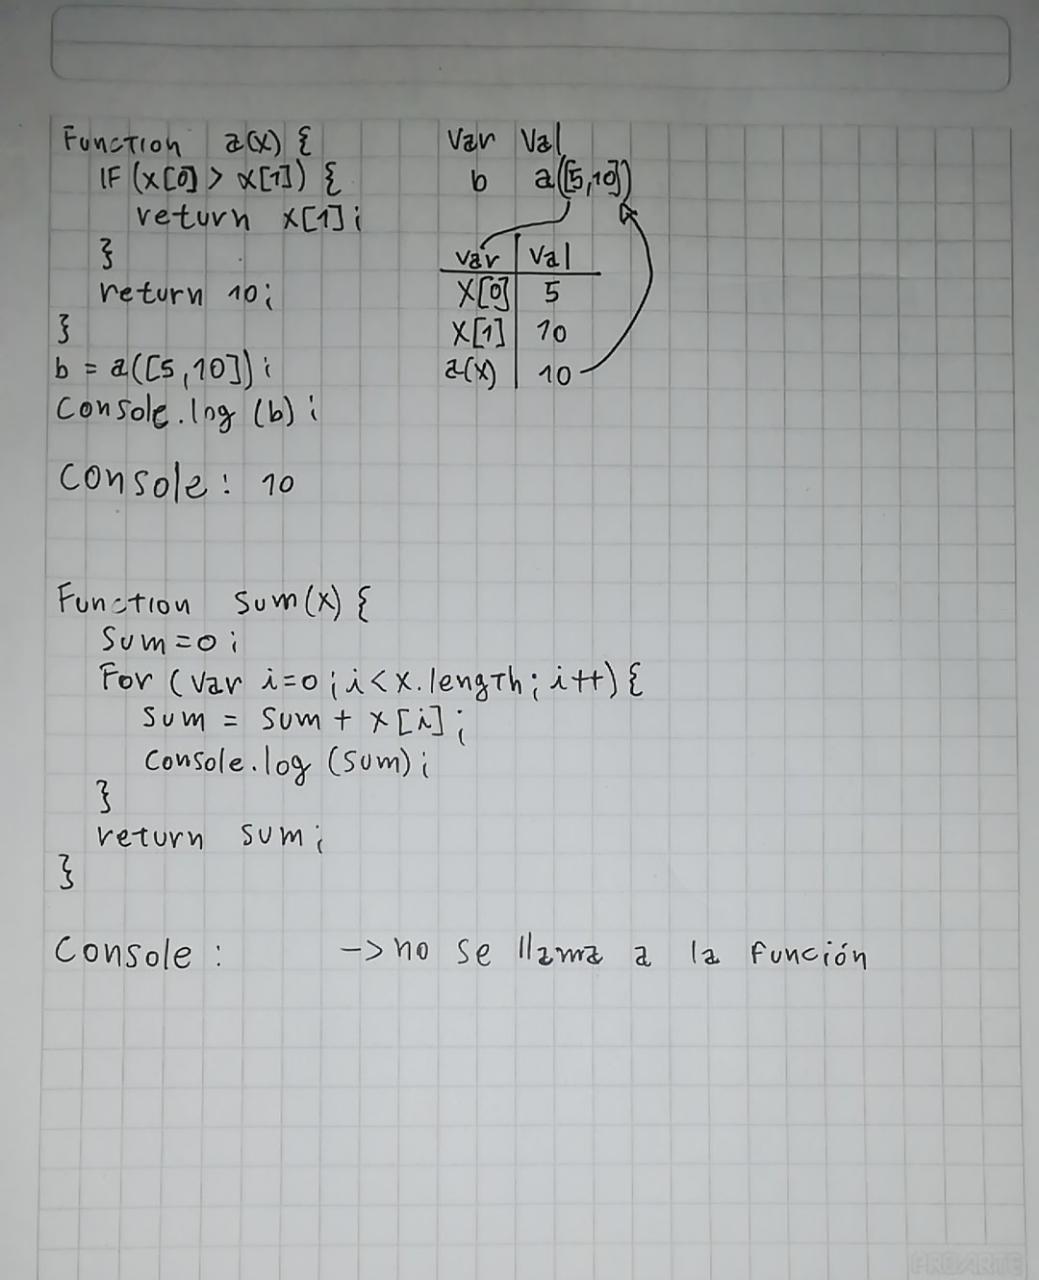 Function a(x) {
IF (x[0] > x[1]) {
return x[1];
}
return 10;
}
b = a([5,10]);
Console.log (b);
Var Val
b a([5,10])
Var Val
X[0] 5
X[1] 10
a(x) 10
Console: 10
Function sum(x) {
sum=0;
For (var i=0;i<x.length; i++) {
sum = sum + x[i];
console.log (sum);
}
return sum;
}
Console: -> no se llama a la función
PROARTE